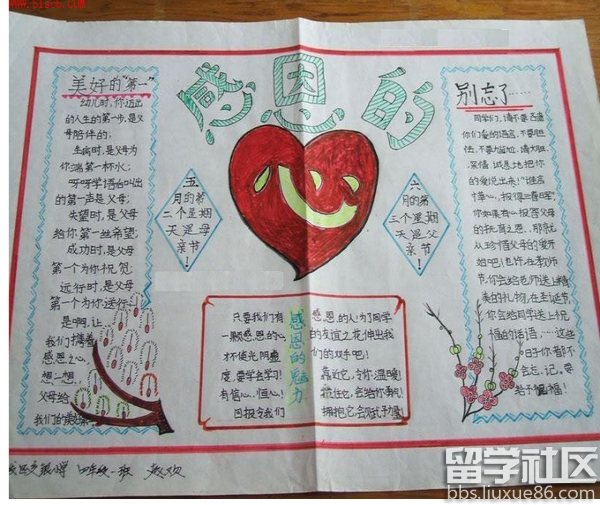 感恩的
心
美好的“第一”
幼儿时,你迈出
的人生的第一步,是父
母陪伴的;
生病时,是父母为
你端第一杯水;
呀呀学语台叫出
的第一声是父母;
失望时,是父母
给你第一丝希望;
成功时,是父母
第一个为你祝贺;
远行时,是父母
第一个为你送行
是啊,让
我们揣着
感恩之心,
想一想,
父母给
我们的
五
月的第
二个星期
天是母
亲节!
六
月的第
三个星期
天是父
亲节!
别忘了……
同学们,请不要吝啬
你们爱的语言,不要胆
怯,不要尴尬,请大胆、
深情、诚恳地把你
的爱说出来!“谁言
寸草心,报得三春晖”,
你如果有心报答父母
的抚育之恩,那就
从珍惜父母的爱开
始吧!也许,在教师
节,你会给老师送上精
美的礼物,在圣诞节,
你会给同学送上祝
福的话语,……这些
日子你都不
会忘记,要
给予福!
感恩的魅力
只要我们有
一颗感恩的心,
度,要学会学习!
有信心、恒心!
回报令我们
感恩的人:为了同学
的友谊之花,伸出我
们的双手吧!
靠近它,令你温暖!
抓住它,会给你勇气!
拥抱它,会赐予力量!
四年级一班
留学社区
bbs.liuxue86.com